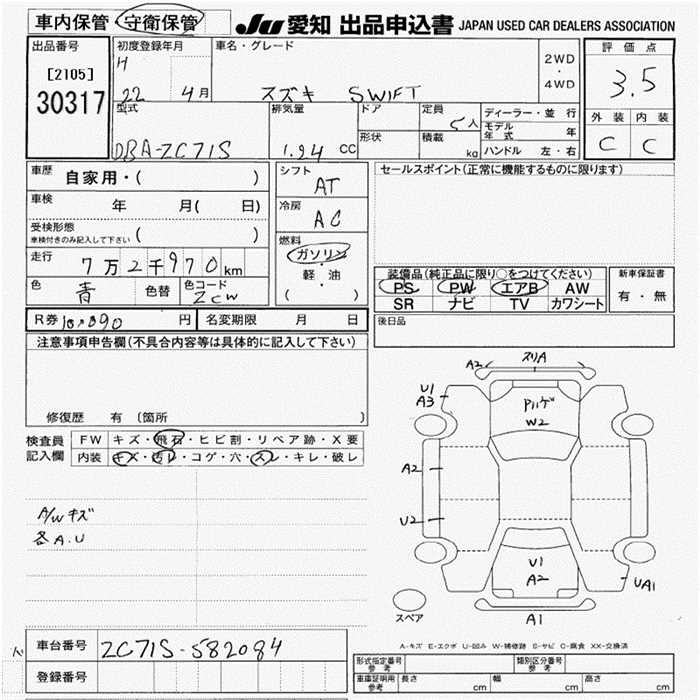 車内保管 守衛保管 JU 愛知 出品申込書 JAPAN USED CAR DEALERS ASSOCIATION
出品番号
[2105]
30317
初度登録年月
H
22 4月
車名・グレード
スズキ SWIFT
2WD
・
4WD
評価点
3.5
外装 内装
C C
型式
DBA-ZC71S
排気量
1.24 CC
ドア
形状
定員
5人
積載
kg
ディーラー・並行
モデル年式 年
ハンドル 左・右
車歴
自家用・( )
車検
年 月( 日)
受検形態
車検付きのみ記入して下さい ( )
走行
7万2千970km
色
青
色替
色コード
ZCW
シフト
AT
冷房
AC
燃料
ガソリン
・
軽・油
( )
セールスポイント(正常に機能するものに限ります)
装備品(純正品に限り○をつけてください)
PS PW エアB AW
SR ナビ TV カワシート
新車保証書
有・無
後日品
R券 10,890 円 名変期限 月 日
注意事項申告欄(不具合内容等は具体的に記入して下さい)
修復歴 有 〔箇所 〕
検査員
記入欄
FW キズ・飛石・ヒビ割・リペア跡・X要
内装 キズ・汚レ・コゲ・穴・スレ・キレ・破レ
A/Wキズ
各A.U
A2 スリA
U1
A3
Pハゲ
W2
A2
U2
U1
A2
UA1
A1
スペア
A-キズ E-エクボ U-凹み W-補修跡 S-サビ C-腐食 XX-交換済
車台番号 ZC71S-582084
登録番号
形式指定番号
参考
類別区分番号
参考
車庫証明用
参考
長さ cm 幅 cm 高さ cm